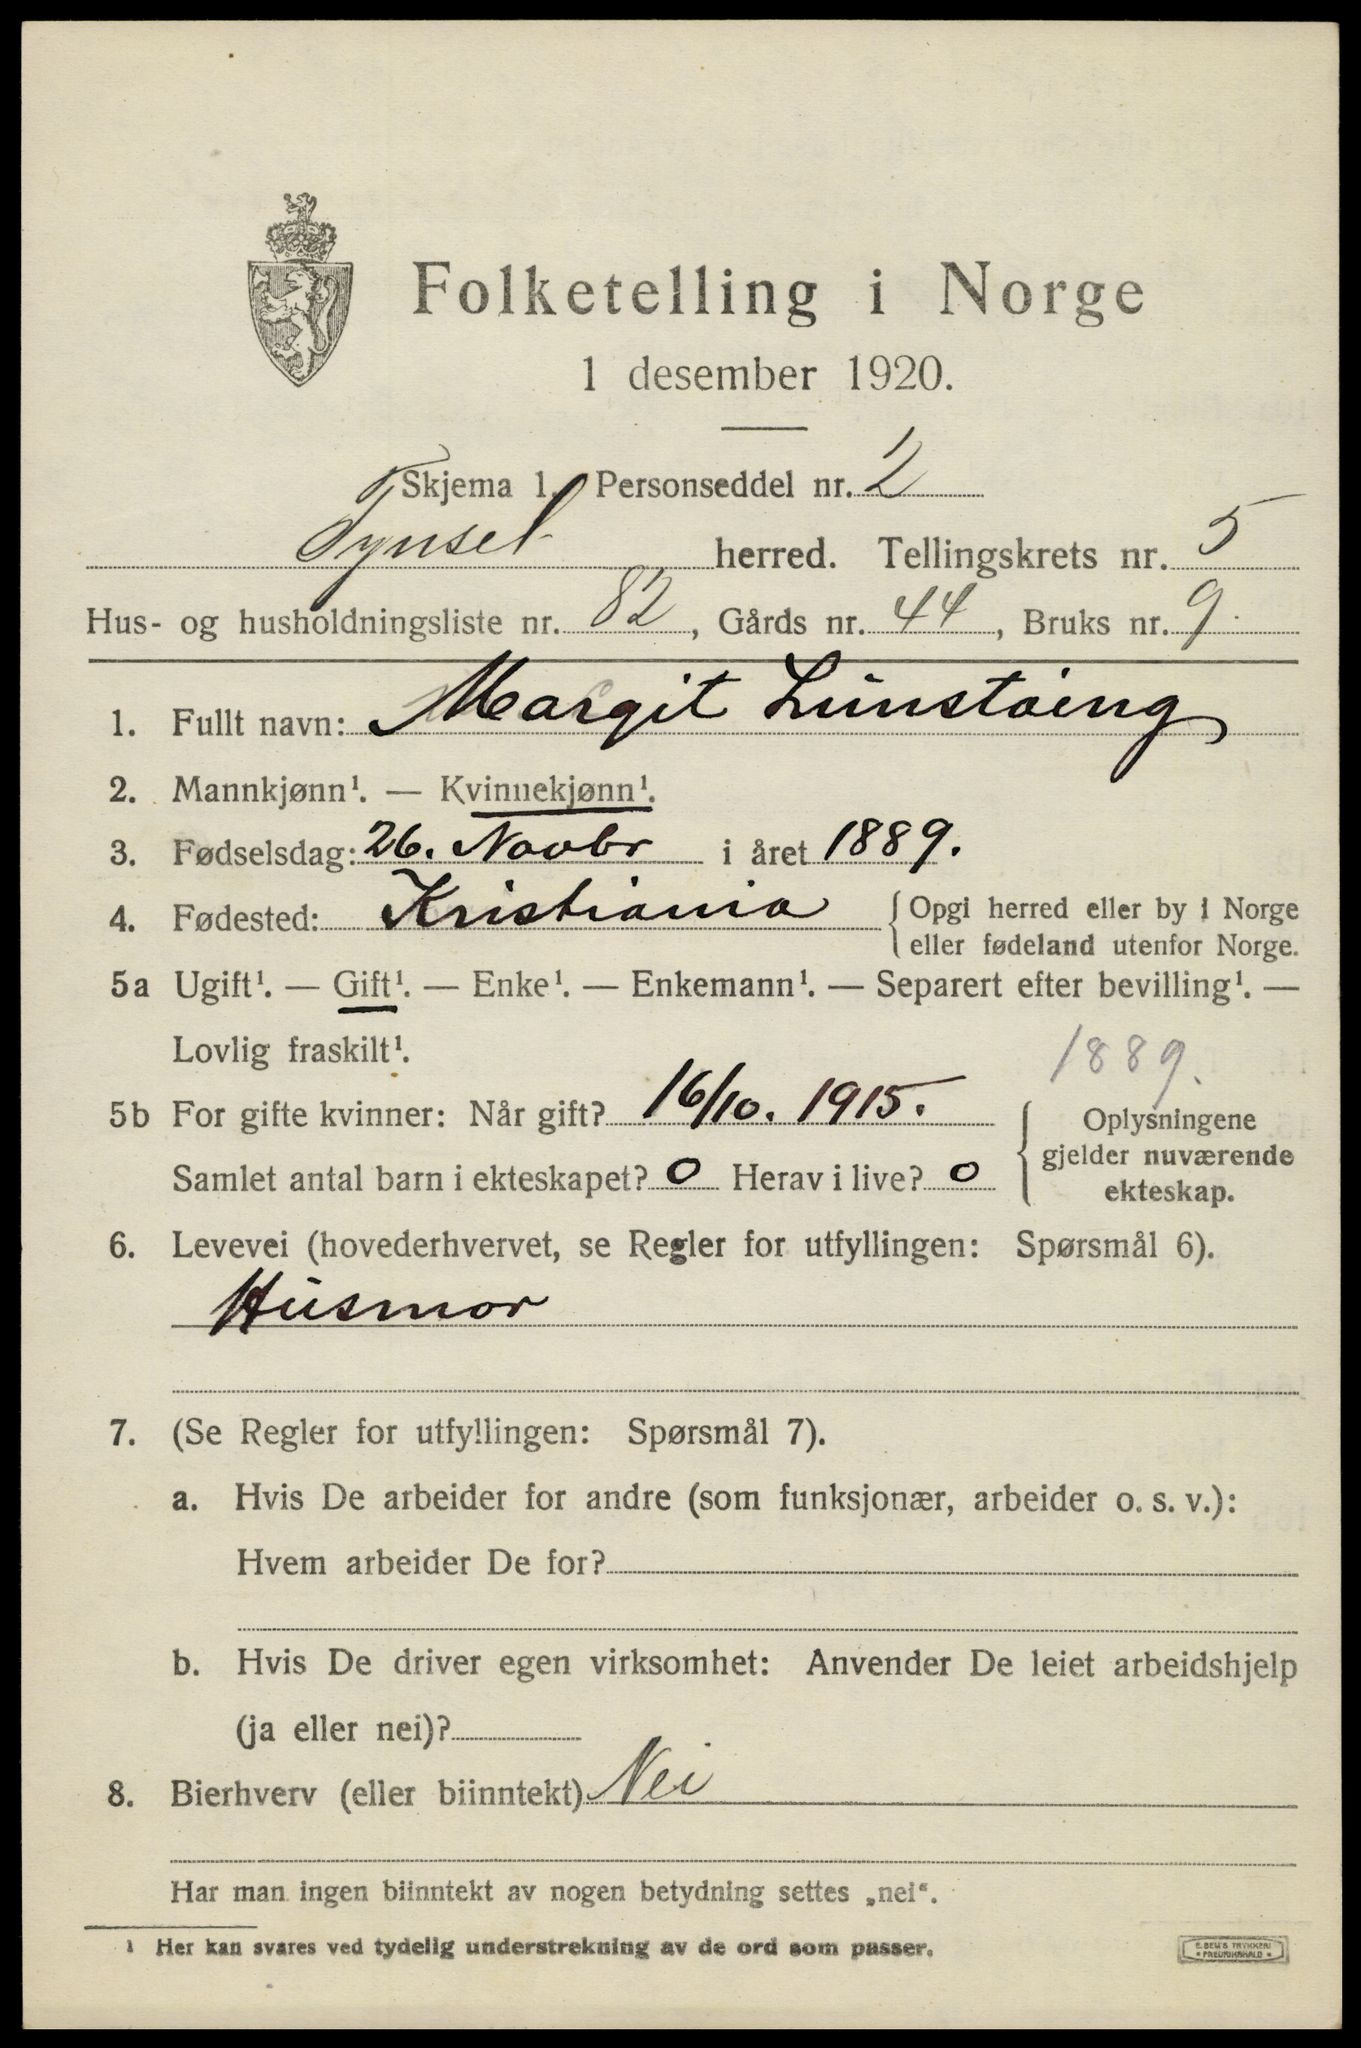 Folketelling i Norge
1 desember 1920.
Skjema 1. Personseddel nr. 2
Tynset herred. Tellingskrets nr. 5
Hus- og husholdningsliste nr. 82, Gårds nr. 44, Bruks nr. 9.
1. Fullt navn: Margit Lunstøing
2. Mannkjønn¹. — Kvinnekjønn¹.
3. Fødselsdag: 26. Novbr i året 1889.
4. Fødested: Kristiania { Opgi herred eller by i Norge
eller fødeland utenfor Norge.
5a Ugift¹. — Gift¹. — Enke¹. — Enkemann¹. — Separert efter bevilling¹. —
Lovlig fraskilt¹. 1889.
5b For gifte kvinner: Når gift? 16/10. 1915. { Oplysningene
gjelder nuværende
Samlet antal barn i ekteskapet? 0 Herav i live? 0 ekteskap.
6. Levevei (hovederhvervet, se Regler for utfyllingen: Spørsmål 6).
Husmor
7. (Se Regler for utfyllingen: Spørsmål 7).
a. Hvis De arbeider for andre (som funksjonær, arbeider o. s. v.):
Hvem arbeider De for?
b. Hvis De driver egen virksomhet: Anvender De leiet arbeidshjelp
(ja eller nei)?
8. Bierhverv (eller biinntekt) Nei
Har man ingen biinntekt av nogen betydning settes „nei“.
¹ Her kan svares ved tydelig understrekning av de ord som passer.
E. SEM'S TRYKKERI
FREDRIKSHALD